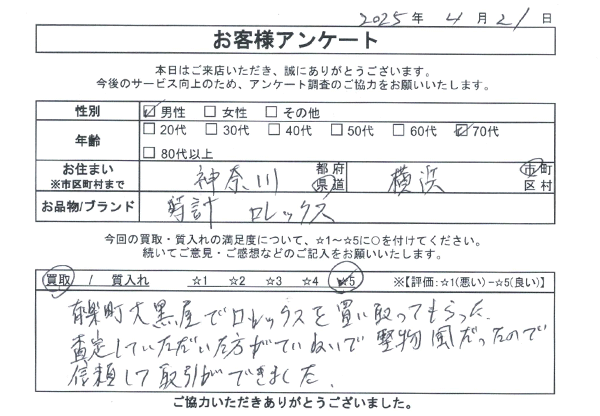 2025年 4月 21日
お客様アンケート
本日はご来店いただき、誠にありがとうございます。
今後のサービス向上のため、アンケート調査のご協力をお願いいたします。
性別 ☑男性 □女性 □その他
年齢 □20代 □30代 □40代 □50代 □60代 ☑70代
□80代以上
お住まい ※市区町村まで 神奈川 都府県道 横浜 市町区村
お品物/ブランド 時計 ロレックス
今回の買取・質入れの満足度について、☆1～☆5に○を付けてください。
続いてご意見・ご感想などのご記入をお願いいたします。
買取 / 質入れ ☆1 ☆2 ☆3 ☆4 ☆5 ※【評価:☆1(悪い)−☆5(良い)】
有楽町大黒屋でロレックスを買い取ってもらった.
査定していただいた方がていねいで堅物風だったので
信頼して取引ができました.
ご協力いただきありがとうございました。